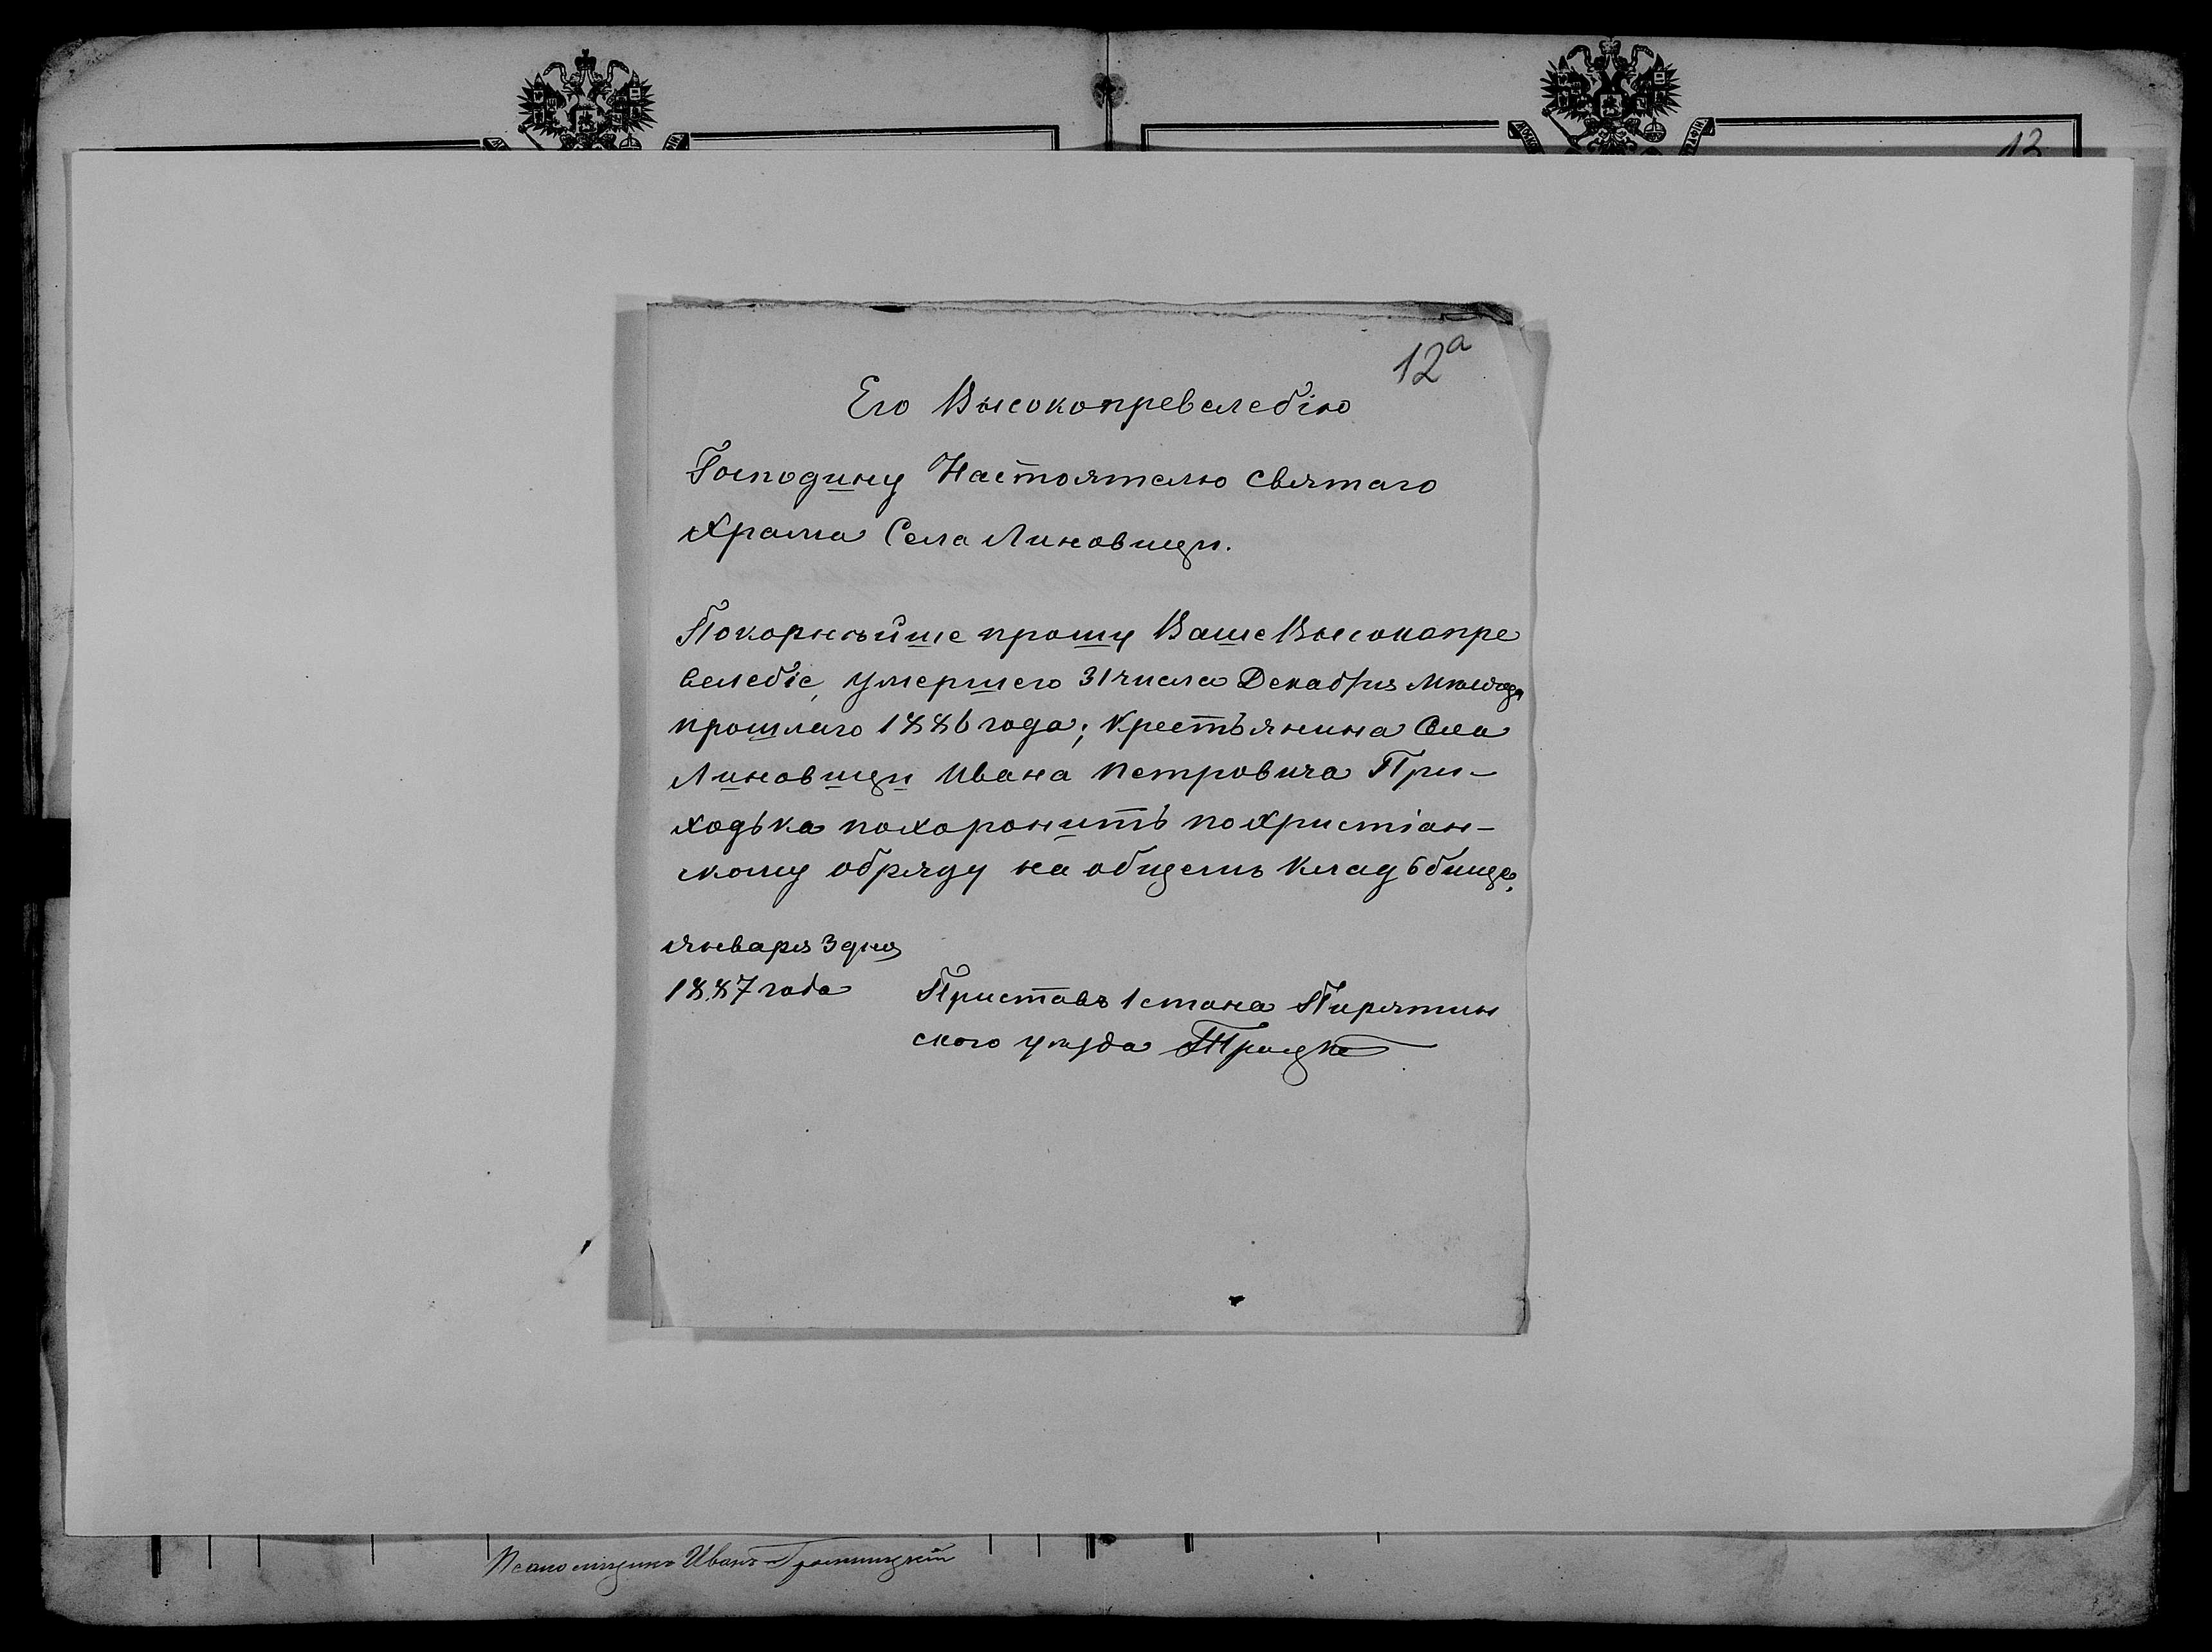 13
12а
Его Высокопревелебію
Господину Настоятелю святаго
Храма Села Линовищи.
Покорнѣйше прошу Ваше Высокопре
велебіе, умершего 31 числа Декабря
прошлаго 1886 года; Крестьянина Села
Линовищи Ивана Петровича При-
ходька похоронить по христіан-
скому обряду на общемъ кладьбище,
Января 3 дня
1887 года
Приставъ 1 стана Пирятин
ского уѣзда
Псаломщикъ Иванъ